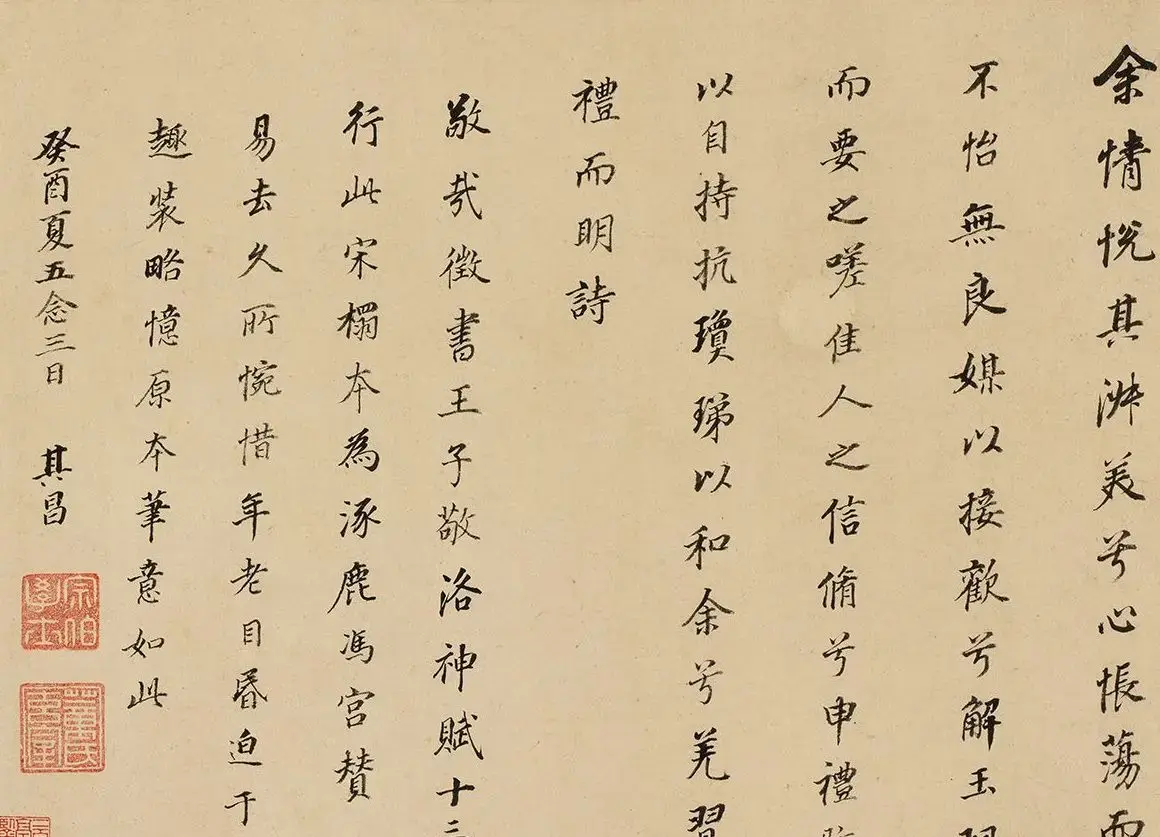 余情悅其淑美兮心悵蕩而
不怡無良媒以接歡兮解玉
而要之嗟佳人之信脩兮申禮
以自持抗瓊珶以和余兮羌習
禮而明詩
敬哉徵書王子敬洛神賦十三
行此宋榻本為涿鹿馮宮贊
易去久所惋惜年老目昏迫于
趣装略憶原本筆意如此
癸酉夏五念三日 其昌
宗伯學士